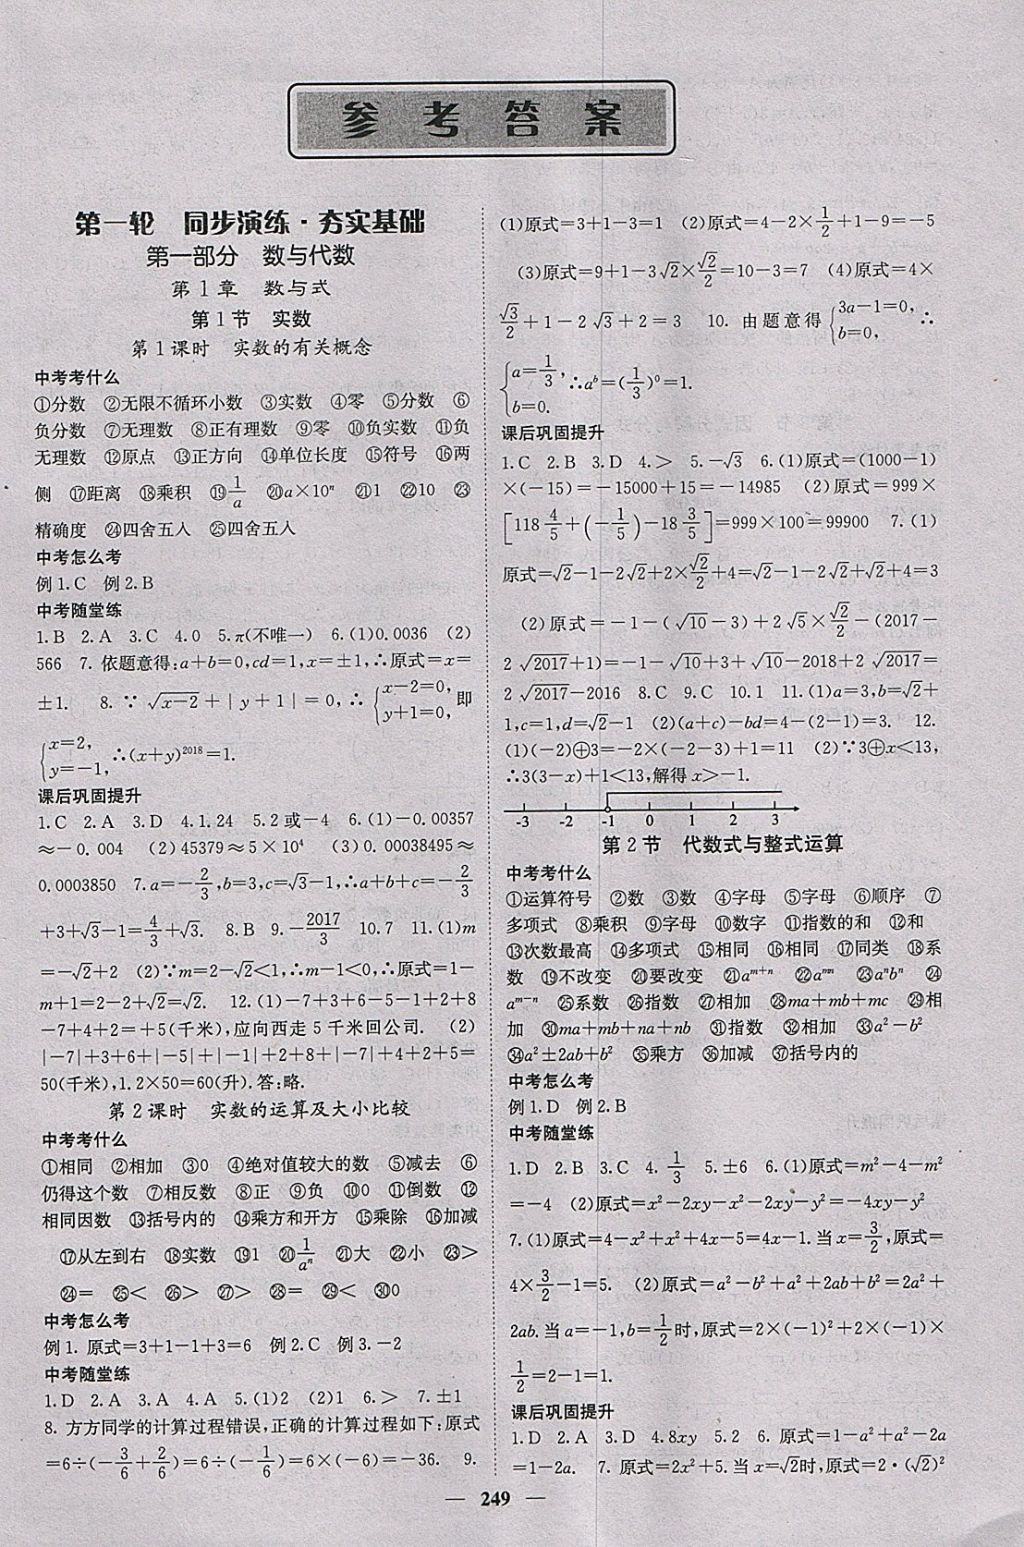 参考答案
第一轮 同步演练·夯实基础
第一部分 数与代数
第1章 数与式
第1节 实数
第1课时 实数的有关概念
中考考什么
①分数 ②无限不循环小数 ③实数 ④零 ⑤分数 ⑥
负分数 ⑦无理数 ⑧正有理数 ⑨零 ⑩负实数 ⑪负
无理数 ⑫原点 ⑬正方向 ⑭单位长度 ⑮符号 ⑯两
侧 ⑰距离 ⑱乘积 ⑲1/a ⑳a×10ⁿ ㉑1 ㉒10 ㉓
精确度 ㉔四舍五入 ㉕四舍五入
中考怎么考
例1.C 例2.B
中考随堂练
1.B 2.A 3.C 4.0 5.π(不唯一) 6.(1)0.0036 (2)
566 7. 依题意得:a+b=0,cd=1,x=±1,∴原式=x=
±1. 8. ∵ √(x−2)+|y+1|=0,∴ {x−2=0, y+1=0, 即
{x=2, y=−1, ∴(x+y)²⁰¹⁸=1.
课后巩固提升
1.C 2.A 3.D 4.1.24 5.2或−4 6.(1)−0.00357
≈−0.004 (2)45379≈5×10⁴ (3)0.00038495≈
0.0003850 7.a=−2/3,b=3,c=√3−1,∴a+b+c=−2/3
+3+√3−1=4/3+√3. 8.B 9.−2017/3 10.7 11.(1)m
=−√2+2 (2)∵m=2−√2<1,∴m−1<0,∴原式=1−
m+1=2−2+√2=√2. 12.(1)−7+3+6−5−1+2+8
−7+4+2=+5(千米),应向西走5千米回公司. (2)
|−7|+3+6+|−5|+|−1|+2+8+|−7|+4+2+5=
50(千米),1.2×50=60(升).答:略.
第2课时 实数的运算及大小比较
中考考什么
①相同 ②相加 ③0 ④绝对值较大的数 ⑤减去 ⑥
仍得这个数 ⑦相反数 ⑧正 ⑨负 ⑩0 ⑪倒数 ⑫
相同因数 ⑬括号内的 ⑭乘方和开方 ⑮乘除 ⑯加减
⑰从左到右 ⑱实数 ⑲1 ⑳1/aⁿ ㉑大 ㉒小 ㉓>
㉔= ㉕< ㉖> ㉗> ㉘= ㉙< ㉚0
中考怎么考
例1. 原式=3+1−1+3=6 例2.C 例3.−2
中考随堂练
1.D 2.A 3.A 4.A 5.(1)2 (2)1 6.> 7.±1
8. 方方同学的计算过程错误,正确的计算过程如下:原式
=6÷(−3/6+2/6)=6÷(−1/6)=6×(−6)=−36. 9.
(1)原式=3+1−3=1 (2)原式=4−2×1/2+1−9=−5
(3)原式=9+1−3√2×√2/2=10−3=7 (4)原式=4×
√3/2+1−2√3+2=3 10. 由题意得{3a−1=0, b=0, ∴
{a=1/3, b=0. ∴aᵇ=(1/3)⁰=1.
课后巩固提升
1.C 2.B 3.D 4.> 5.−√3 6.(1)原式=(1000−1)
×(−15)=−15000+15=−14985 (2)原式=999×
[118 4/5+(−1/5)−18 3/5]=999×100=99900 7.(1)
原式=√2−1−2√2+2×√2/2+4=√2−1−2√2+√2+4=3
(2)原式=−1−(√10−3)+2√5×√2/2−(2017−
2√2017+1)=−1−√10+3+√10−2018+2√2017=
2√2017−2016 8.C 9.C 10.1 11.(1)a=3,b=√2+
1,c=1,d=√2−1 (2)(a+c)−bd=4−(2−1)=3. 12.
(1)(−2)⊕3=−2×(−2−3)+1=11 (2)∵3⊕x<13,
∴3(3−x)+1<13,解得x>−1.
-3 -2 -1 0 1 2 3
第2节 代数式与整式运算
中考考什么
①运算符号 ②数 ③数 ④字母 ⑤字母 ⑥顺序 ⑦
多项式 ⑧乘积 ⑨字母 ⑩数字 ⑪指数的和 ⑫和
⑬次数最高 ⑭多项式 ⑮相同 ⑯相同 ⑰同类 ⑱系
数 ⑲不改变 ⑳要改变 ㉑aᵐ⁺ⁿ ㉒aᵐⁿ ㉓aⁿbⁿ ㉔
aᵐ⁻ⁿ ㉕系数 ㉖指数 ㉗相加 ㉘ma+mb+mc ㉙相
加 ㉚ma+mb+na+nb ㉛指数 ㉜相加 ㉝a²−b²
㉞a²±2ab+b² ㉟乘方 ㊱加减 ㊲括号内的
中考怎么考
例1.D 例2.B
中考随堂练
1.D 2.B 3.C 4.1/3 5.±6 6.(1)原式=m²−4−m²
=−4 (2)原式=x²−2xy−x²−2xy−y²=−4xy−y²
7.(1)原式=4−x²+x²+4x−5=4x−1.当x=3/2,原式=
4×3/2−1=5. (2)原式=a²−b²+a²+2ab+b²=2a²+
2ab.当a=−1,b=1/2时,原式=2×(−1)²+2×(−1)×
1/2=2−1=1.
课后巩固提升
1.D 2.A 3.D 4.8xy 5.2 6. 原式=1−a²+a²−2a
=1−2a. 7. 原式=2x²+5.当x=√2时,原式=2·(√2)²
— 249 —